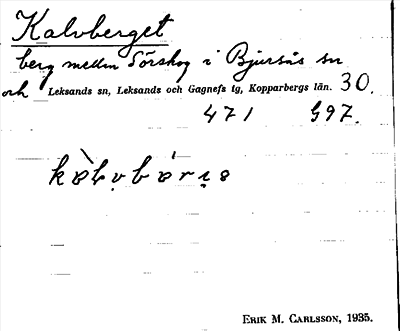 Kalvberget
berg mellan Sörskog i Bjursås sn
och Leksands sn, Leksands och Gagnefs tg, Kopparbergs län. 30.
471 G97.
ERIK M. CARLSSON, 1935.